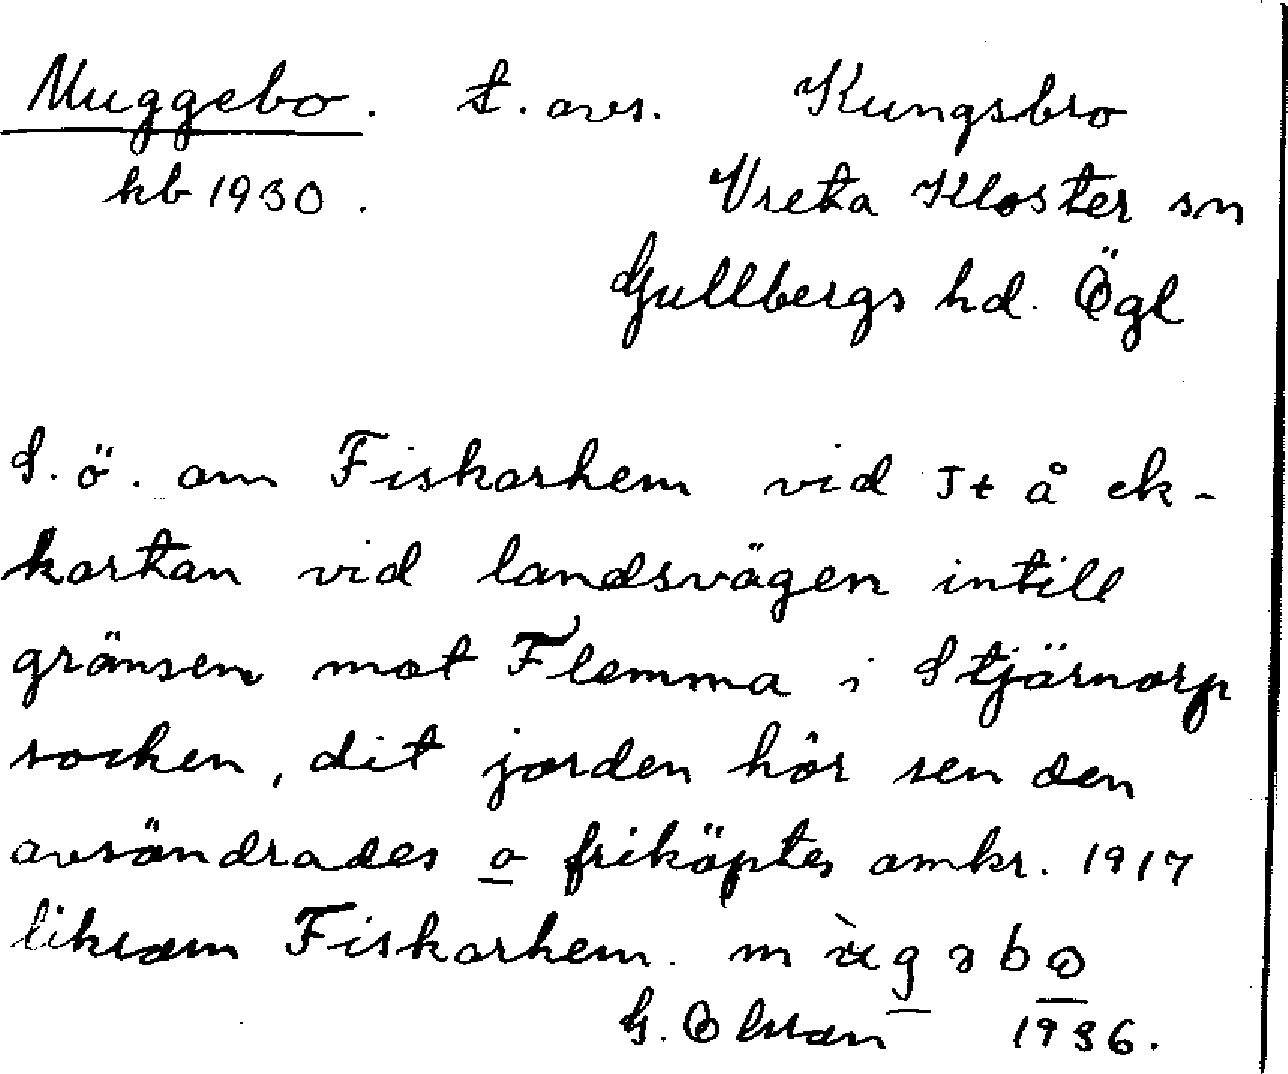 Muggebo. t. avs. Kungsbro
kb 1930. Vreta Kloster sn
Gullbergs hd. Ögl
S. ö. om Fiskarhem vid Jt å ek-
kartan vid landsvägen intill
gränsen mot Flemma i Stjärnorp
socken, dit jorden hör sen den
avsöndrades o friköptes omkr. 1917
liksom Fiskarhem.
G. Olsson 1936.